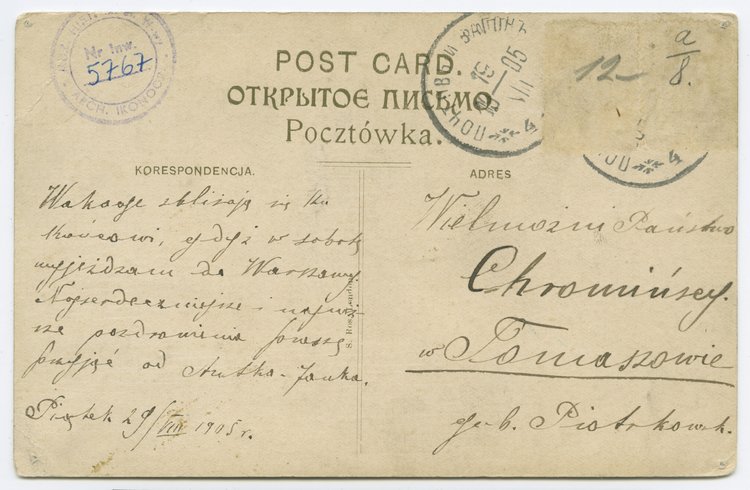 Nr inw.
5767
ARCH. IKONOGR.
12-
a
8.
POST CARD.
ОТКРЫТОЕ ПИСЬМО
Pocztówka.
19
05
VII
4
4
KORESPONDENCJA.
ADRES
Wakacye zbliżają się ku
końcowi, gdyż w sobotę
wyjeżdżam do Warszawy
Najserdeczniejsze i
pozdrowienia proszę
przyjąć od Antka-Janka.
Piątek 29/VIII 1905 r.
Wielmożni Państwo
Chromińscy.
w Tomaszowie
gub. Piotrkowsk.